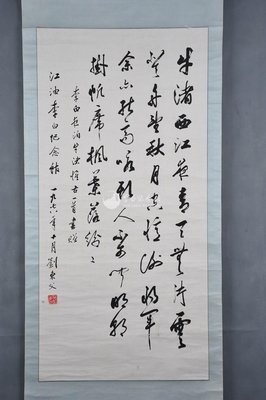 牛渚西江夜青天無片雲
登舟望秋月空憶謝將軍
余亦能高咏斯人不可聞明朝
掛帆席楓葉落紛〻
李白夜泊牛渚懷古一首書贈
江油李白紀念館 一九七八年十月 劉東父